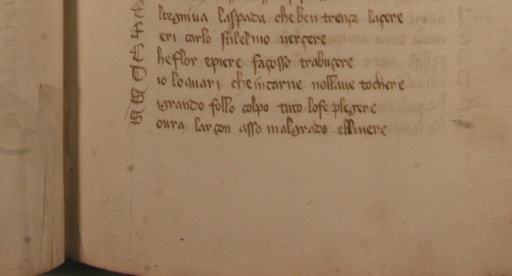 ltegniua laspada che ben trença laçere
eri carlo su lelmo uerçere
he flor epiere façosso trabuçere
io lo quari che in carne nollaue tochere
igrando follo colpo tuto lofe plegere
oura larçon asso malgrado ellinere